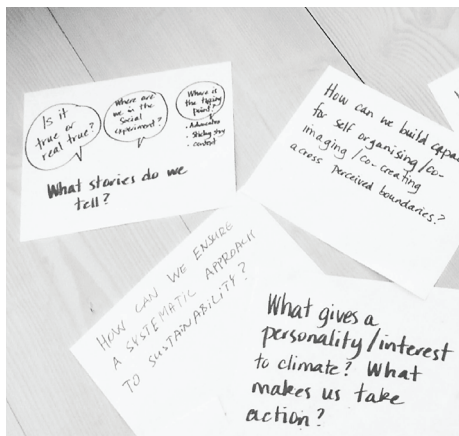 Is it
true or
real true?
Where are
we in the
social
experiment?
Where is
the tipping
point?
- Advocates
- Sticky story
- context
What stories do we
tell?
How can we build capa
for self organising/co-
imaging/co-creating
across perceived boundaries?
HOW CAN WE ENSURE
A SYSTEMATIC APPROACH
TO SUSTAINABILITY?
What gives a
personality/interest
to climate? What
makes us take
action?